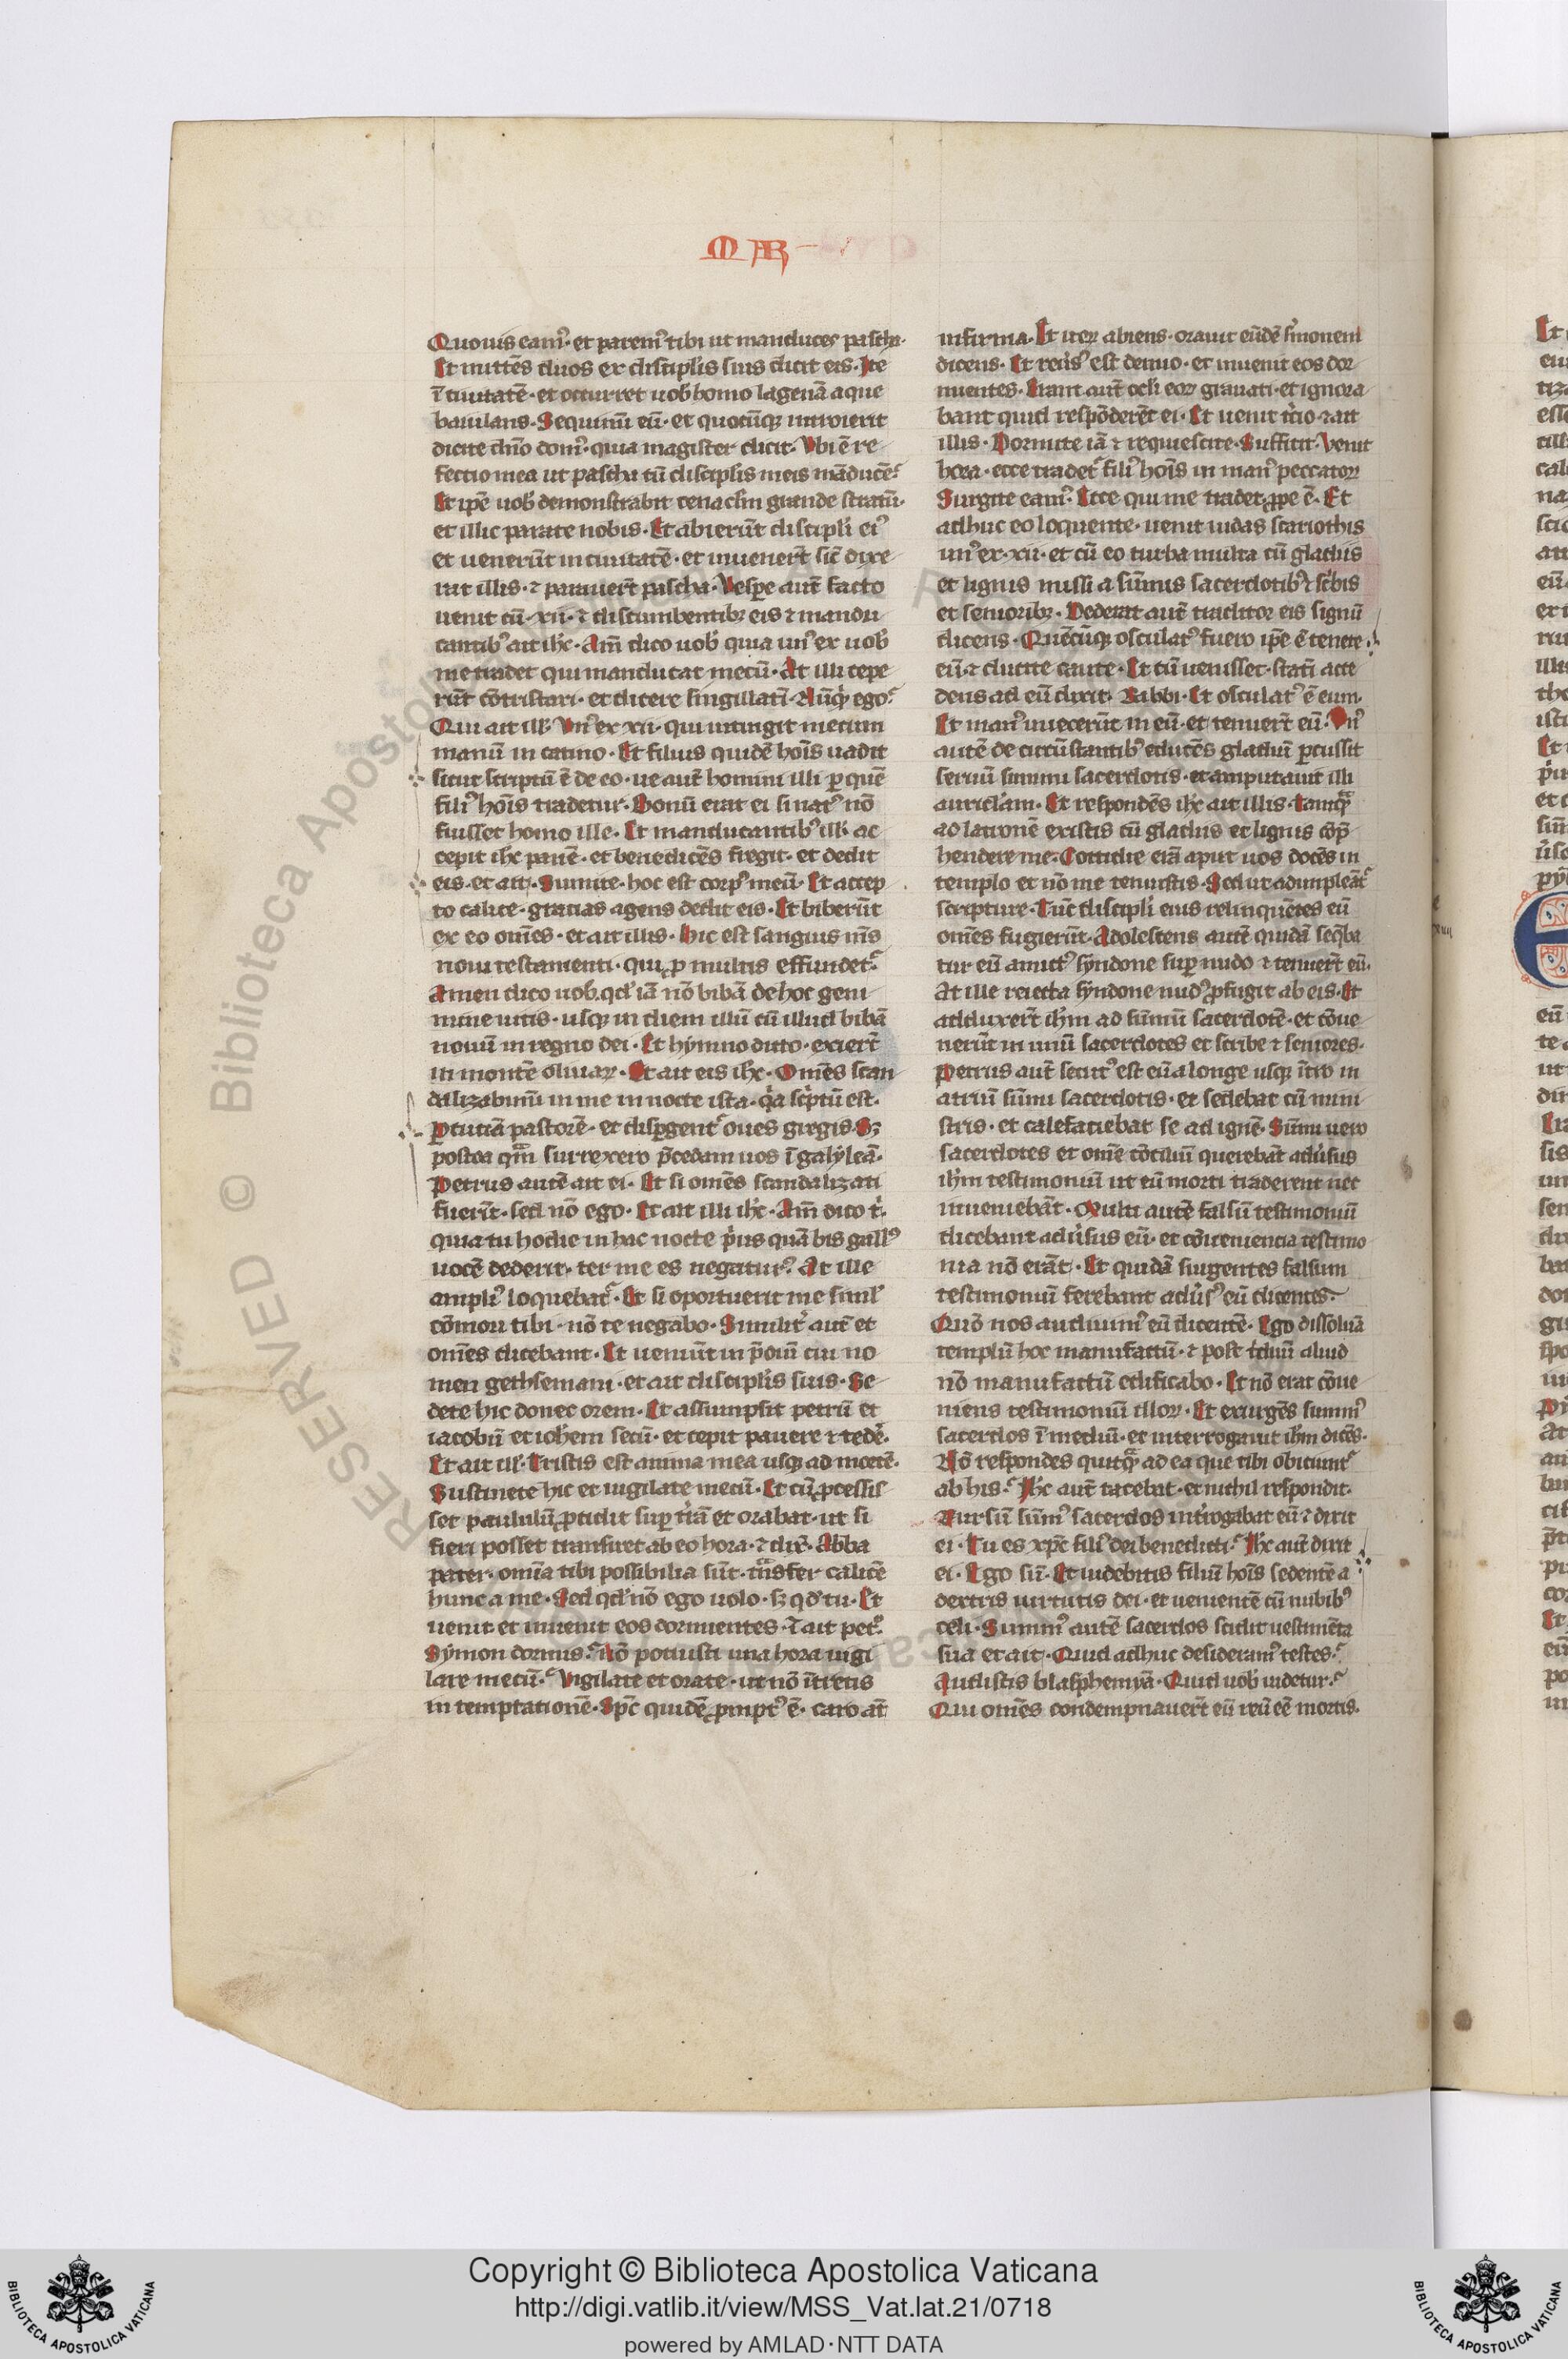 MAR
Quo uis eam᷒ · et parem᷒ tibi ut manduces pascha ·
Et mittēs duos ex discipl'is suis dicit eis · Ite
ī ciuitatē · et occurret uob' homo lagenā aque
baiulans · Sequimī eū · et quocūq; introierit
dicite dn̄o dom᷒ · quia magister dicit · Vbi ē re
fectio mea ut pascha cū discipl'is meis māducē ?
Et ipē uob' demonstrabit cenaclm̄ grande stratū ·
et illic parate nobis · Et abierūt discipl'i ei᷒
et uenerūt in ciuitatē · et inuenert̄ sic̄ dixe
rat illis · ⁊ parauert̄ pascha · Vesp̄e aut̄ facto
uenit cū · xii · ⁊ discumbentib; eis ⁊ mandu
cantib᷒ ait ih̄c · Am̄ dico uob' quia un᷒ ex uob'
me tradet qui manducat mecū · At illi cepe
rūt cōtristari · et dicere singillatī · Nūq̇ ego ?
Qui ait ill' · Vn᷒ ex xii · qui intingit mecum
manū in catino · Et filius quidē hoīs uadit
sicut scriptū ē de eo · ue aut̄ homini illi ꝑ quē
fili᷒ hoīs tradetur · Bonū erat ei si nat᷒ nō
fuisset homo ille · Et manducantib᷒ ill' ac
cepit ih̄c panē · et benedicēs fregit · et dedit
eis · et ait · Sumite · hoc est corp᷒ meū · Et accep
to calice · gracias agens dedit eis · Et biberūt
ex eo om̄es · et ait illis · Hic est sanguis m̄s
noui testamenti · qui ꝓ multis effundet᷑ ·
Amen dico uob' qd' iā nō bibā de hoc geni
mine uitis · usq; in diem illū cū illud bibā
nouū in regno dei · Et hymno dicto · exiert̄
in montē oliuaꝝ · Et ait eis ih̄c · Om̄es scan
dalizabimī in me in nocte ista · q̇a sċptū est ·
ꝑcuciā pastorē · et disꝑgent᷑ oues gregis · Sꝫ
postea qm̄ surrexero p̄cedam uos ī galyleā ·
Petrus autē ait ei · Et si om̄es scandalizati
fuerīt · sed nō ego · Et ait illi ih̄c · Am̄ dico t' ·
quia tu hodie in hac nocte p'us quā bis gall᷒
uocē dederit · ter me es negatur᷒ · At ille
ampli᷒ loquebat᷑ · Et si oportuerit me simul'
cōmori tibi · nō te negabo · Similit' aut̄ et
om̄es dicebant · Et ueniūt in p̄diū cui no
men gethsemani · et ait discipl'is suis · Se
dete hic donec orem · Et assumpsit petrū et
iacobū et ioh'em secū · et cepit pauere ⁊ tedē' ·
Et ait ill' · Tristis est anima mea usq; ad mortē ·
Sustinete hic et uigilate mecū · Et cū ꝓcessis
set paululū ꝓcidit suꝑ t'rā et orabat · ut si
fieri posset transiret ab eo hora · ⁊ dix̄ · Abba
pater · omīa tibi possibilia sūt · tn̄sfer calicē
hunc a me · Sed qd' nō ego uolo · sꝫ qd' tu · Et
uenit et inuenit eos dormientes · ⁊ ait pet᷒ ·
Symon dormis ? Nō potuisti una hora uigi
lare mecū ? Vigilate et orate · ut nō ītretis
in temptationē · Sp̄c quidē ꝓmpt᷒ ē · caro at̄
infirma · Et iteꝝ abiens · orauit eūdē s'monem
dicens · Et reu's᷒ est denuo · et inuenit eos dor
mientes · Erant aut̄ ocl'i eoꝝ grauati · et ignora
bant quid respōderēt ei · Et uenit t'cio · ⁊ ait
illis · Dormite iā ⁊ requiescite · Sufficit · Venit
hora · ecce tradet᷑ fili᷒ hoīs in man᷒ peccatoꝝ
Surgite eam᷒ · Ecce qui me tradet ꝓpe ē · Et
adhuc eo loquente · uenit iudas scariothis
un᷒ ex · xii · et cū eo turba multa cū gladiis
et lignis missi a sūmis sacerdotib᷒ ⁊ sc'bis
et seniorib; · Dederat aut̄ traditor eis signū
dicens · Quēcūq; osculat᷒ fuero ip̄e ē tenete
eū · ⁊ ducite caute · Et cū uenisset · statī acce
dens ad eū dixit · Rabbi · Et osculat᷒ ē eum ·
Et man᷒ iniecerūt in eū · et tenuert̄ eū · Vn᷒
autē de circūstantib᷒ educēs gladiū ꝑcussit
seruū summi sacerdotis · et amputauit illi
auricl'am · Et respondēs ih̄c ait illis · Tamq̄
ad latronē existis cū gladiis et lignis cōp̄
hendere me · Cottidie erā aput uos docēs in
templo et nō me tenuistis · Sed ut adimpleāt᷑
scripture · Tūc discipl'i eius relinquētes eū
om̄es fugierūt · Adolescens autē quidā seq̄ba
tur eū amict᷒ syndone suꝑ nudo ⁊ tenuert̄ eū ·
At ille reiecta syndone nud᷒ ꝓfugit ab eis · Et
adduxert̄ ih̄m ad sūmū sacerdotē · et cōue
nerūt in unū sacerdotes et scribe ⁊ seniores ·
Petrus aut̄ secut᷒ est eū a longe usq; īt'o in
atriū sūmi sacerdotis · et sedebat cū mini
stris · et calefaciebat se ad ignē · Sūmi uero
sacerdotes et om̄e cōciliū querebāt adu'sus
ih̄m testimoniū ut eū morti traderent nec
inueniebāt · Multi autē falsū testimoniū
dicebant adu'sus eū · et cōueniencia testimo
nia nō erāt · Et quidā surgentes falsum
testimoniū ferebant adu's᷒ eū dicentes ·
Quō nos audiuim᷒ eū dicentē · Ego dissoluā
templū hoc manufactū · ⁊ post t'duū aliud
nō manufactū edificabo · Et nō erat cōue
niens testimoniū illoꝝ · Et exurgēs summ᷒
sacerdos ī mediū · et interrogauit ih̄m dicēs ·
Nō respondes quitq̄ ad ea que tibi obiciunt᷑
ab his ? Ih̄c aut̄ tacebat · et nichil respondit ·
Rursū sūm᷒ sacerdos int'rogabat eū ⁊ dixit
ei · Tu es xp̄c fili᷒ dei benedicti ? Ih̄c aut̄ dixit
ei · Ego sū · Et uidebitis filiū hoīs sedentē a
dextris uirtutis dei · et uenientē cū nubib᷒
celi · Summ᷒ autē sacerdos scidit uestimēta
sua et ait · Quid adhuc desideram᷒ testes ?
Audistis blasphemyā · Quid uob' uidetur ?
Qui om̄es condempnauert̄ eū reū eē mortis ·
RESERVED © Biblioteca Apostolica
Copyright © Biblioteca Apostolica Vaticana
http://digi.vatlib.it/view/MSS_Vat.lat.21/0718
powered by AMLAD · NTT DATA
BIBLIOTECA APOSTOLICA VATICANA
BIBLIOTECA APOSTOLICA VATICANA